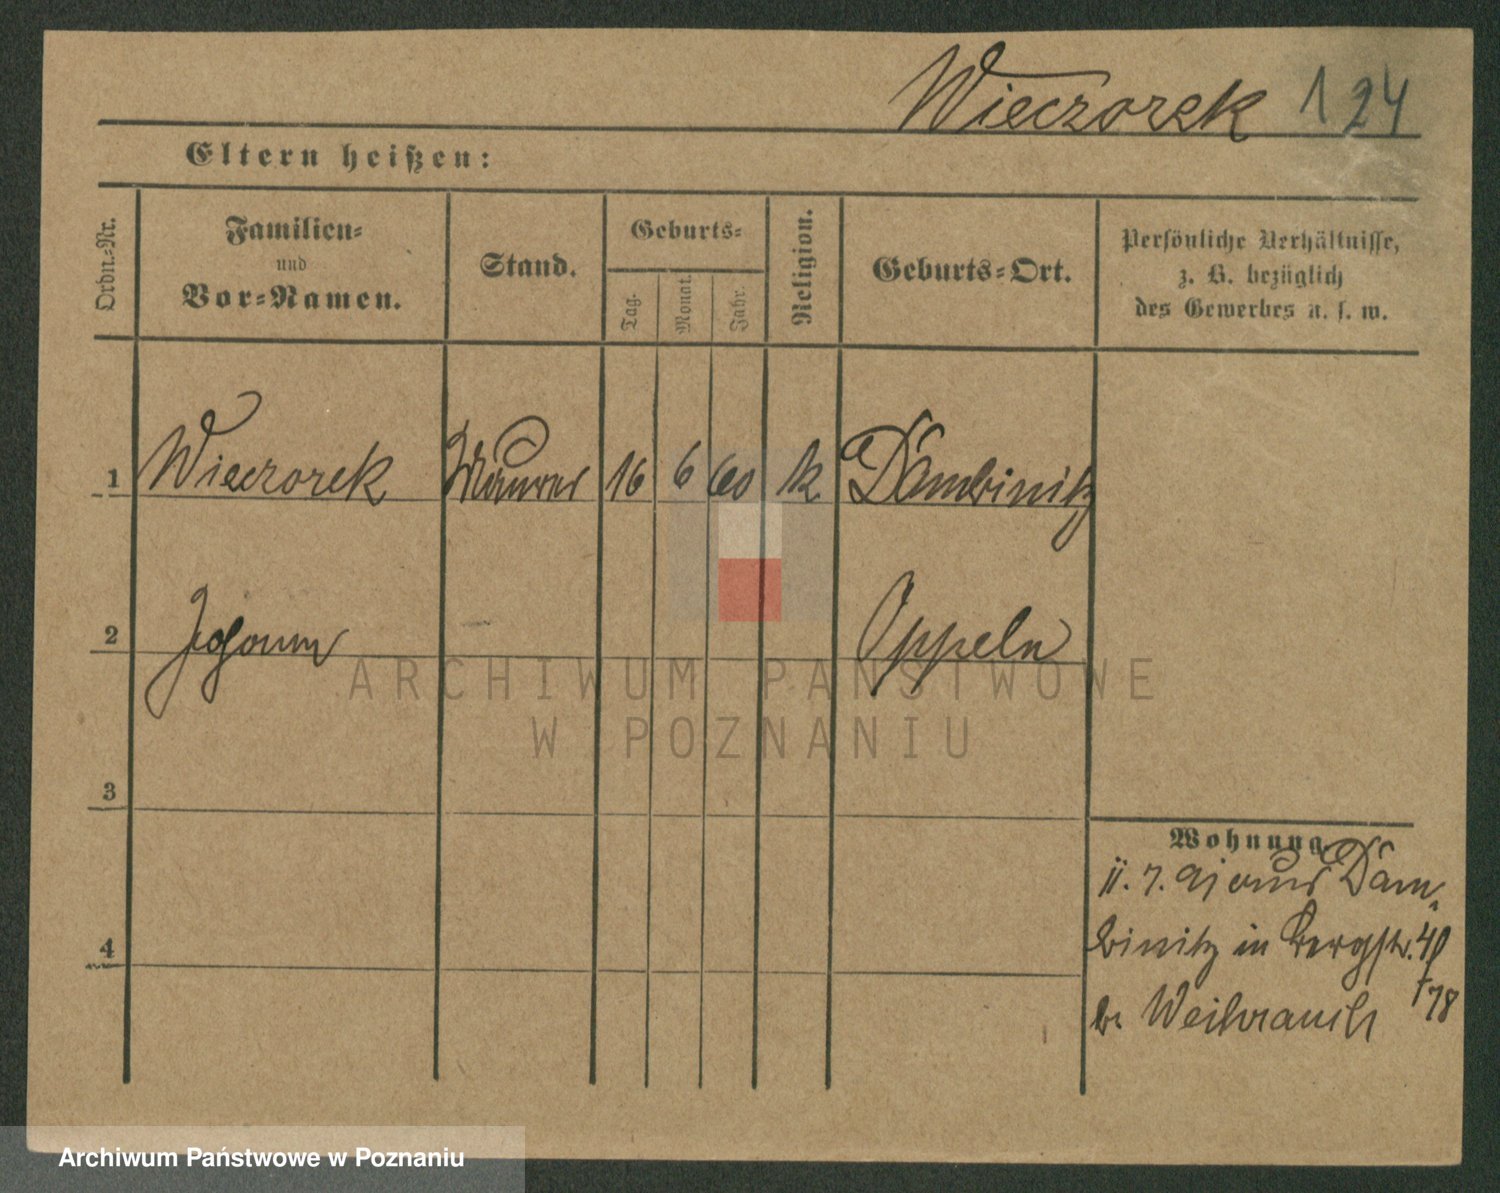 Wieczorek 124
Eltern heißen:
Ordn.-Nr.
Familien-
und
Vor-Namen.
Stand.
Geburts-
Tag.
Monat.
Jahr.
Religion.
Geburts-Ort.
Persönliche Verhältnisse,
z. B. bezüglich
des Gewerbes u. s. w.
1 Wieczorek Maurer 16 6 60 k Dambinitz
2 Johann Oppeln
3
4
Wohnung.
aus Dam-
binitz in Bergstr.
b. Weihrauch 78
ARCHIWUM PAŃSTWOWE
W POZNANIU
Archiwum Państwowe w Poznaniu